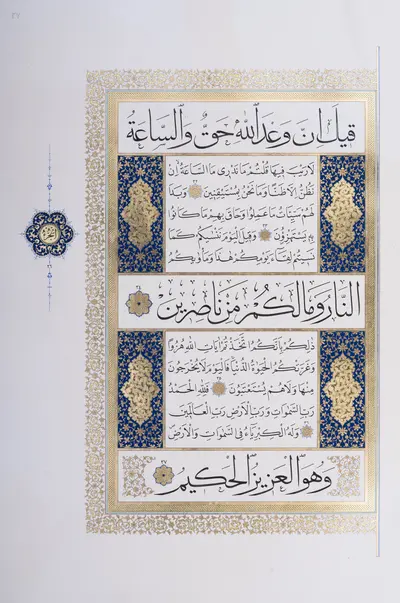 قِيلَ اِنَّ وَعْدَ اللّٰهِ حَقٌّ وَالسَّاعَةُ
لَا رَيْبَ فِيهَا قُلْتُمْ مَا نَدْرِي مَا السَّاعَةُ اِنْ
نَظُنُّ اِلَّا ظَنًّا وَمَا نَحْنُ بِمُسْتَيْقِنِينَ وَبَدَا
لَهُمْ سَيِّئَاتُ مَا عَمِلُوا وَحَاقَ بِهِمْ مَا كَانُوا
بِهِ يَسْتَهْزِؤُنَ وَقِيلَ الْيَوْمَ نَنْسٰيكُمْ كَمَا
نَسِيتُمْ لِقَاءَ يَوْمِكُمْ هٰذَا وَمَأْوٰيكُمُ
النَّارُ وَمَا لَكُمْ مِنْ نَاصِرِينَ
ذٰلِكُمْ بِاَنَّكُمُ اتَّخَذْتُمْ اٰيَاتِ اللّٰهِ هُزُوًا
وَغَرَّتْكُمُ الْحَيٰوةُ الدُّنْيَا فَالْيَوْمَ لَا يُخْرَجُونَ
مِنْهَا وَلَا هُمْ يُسْتَعْتَبُونَ فَلِلّٰهِ الْحَمْدُ
رَبِّ السَّمٰوَاتِ وَرَبِّ الْاَرْضِ رَبِّ الْعَالَمِينَ
وَلَهُ الْكِبْرِيَاءُ فِي السَّمٰوَاتِ وَالْاَرْضِ
وَهُوَ الْعَزِيزُ الْحَكِيمُ